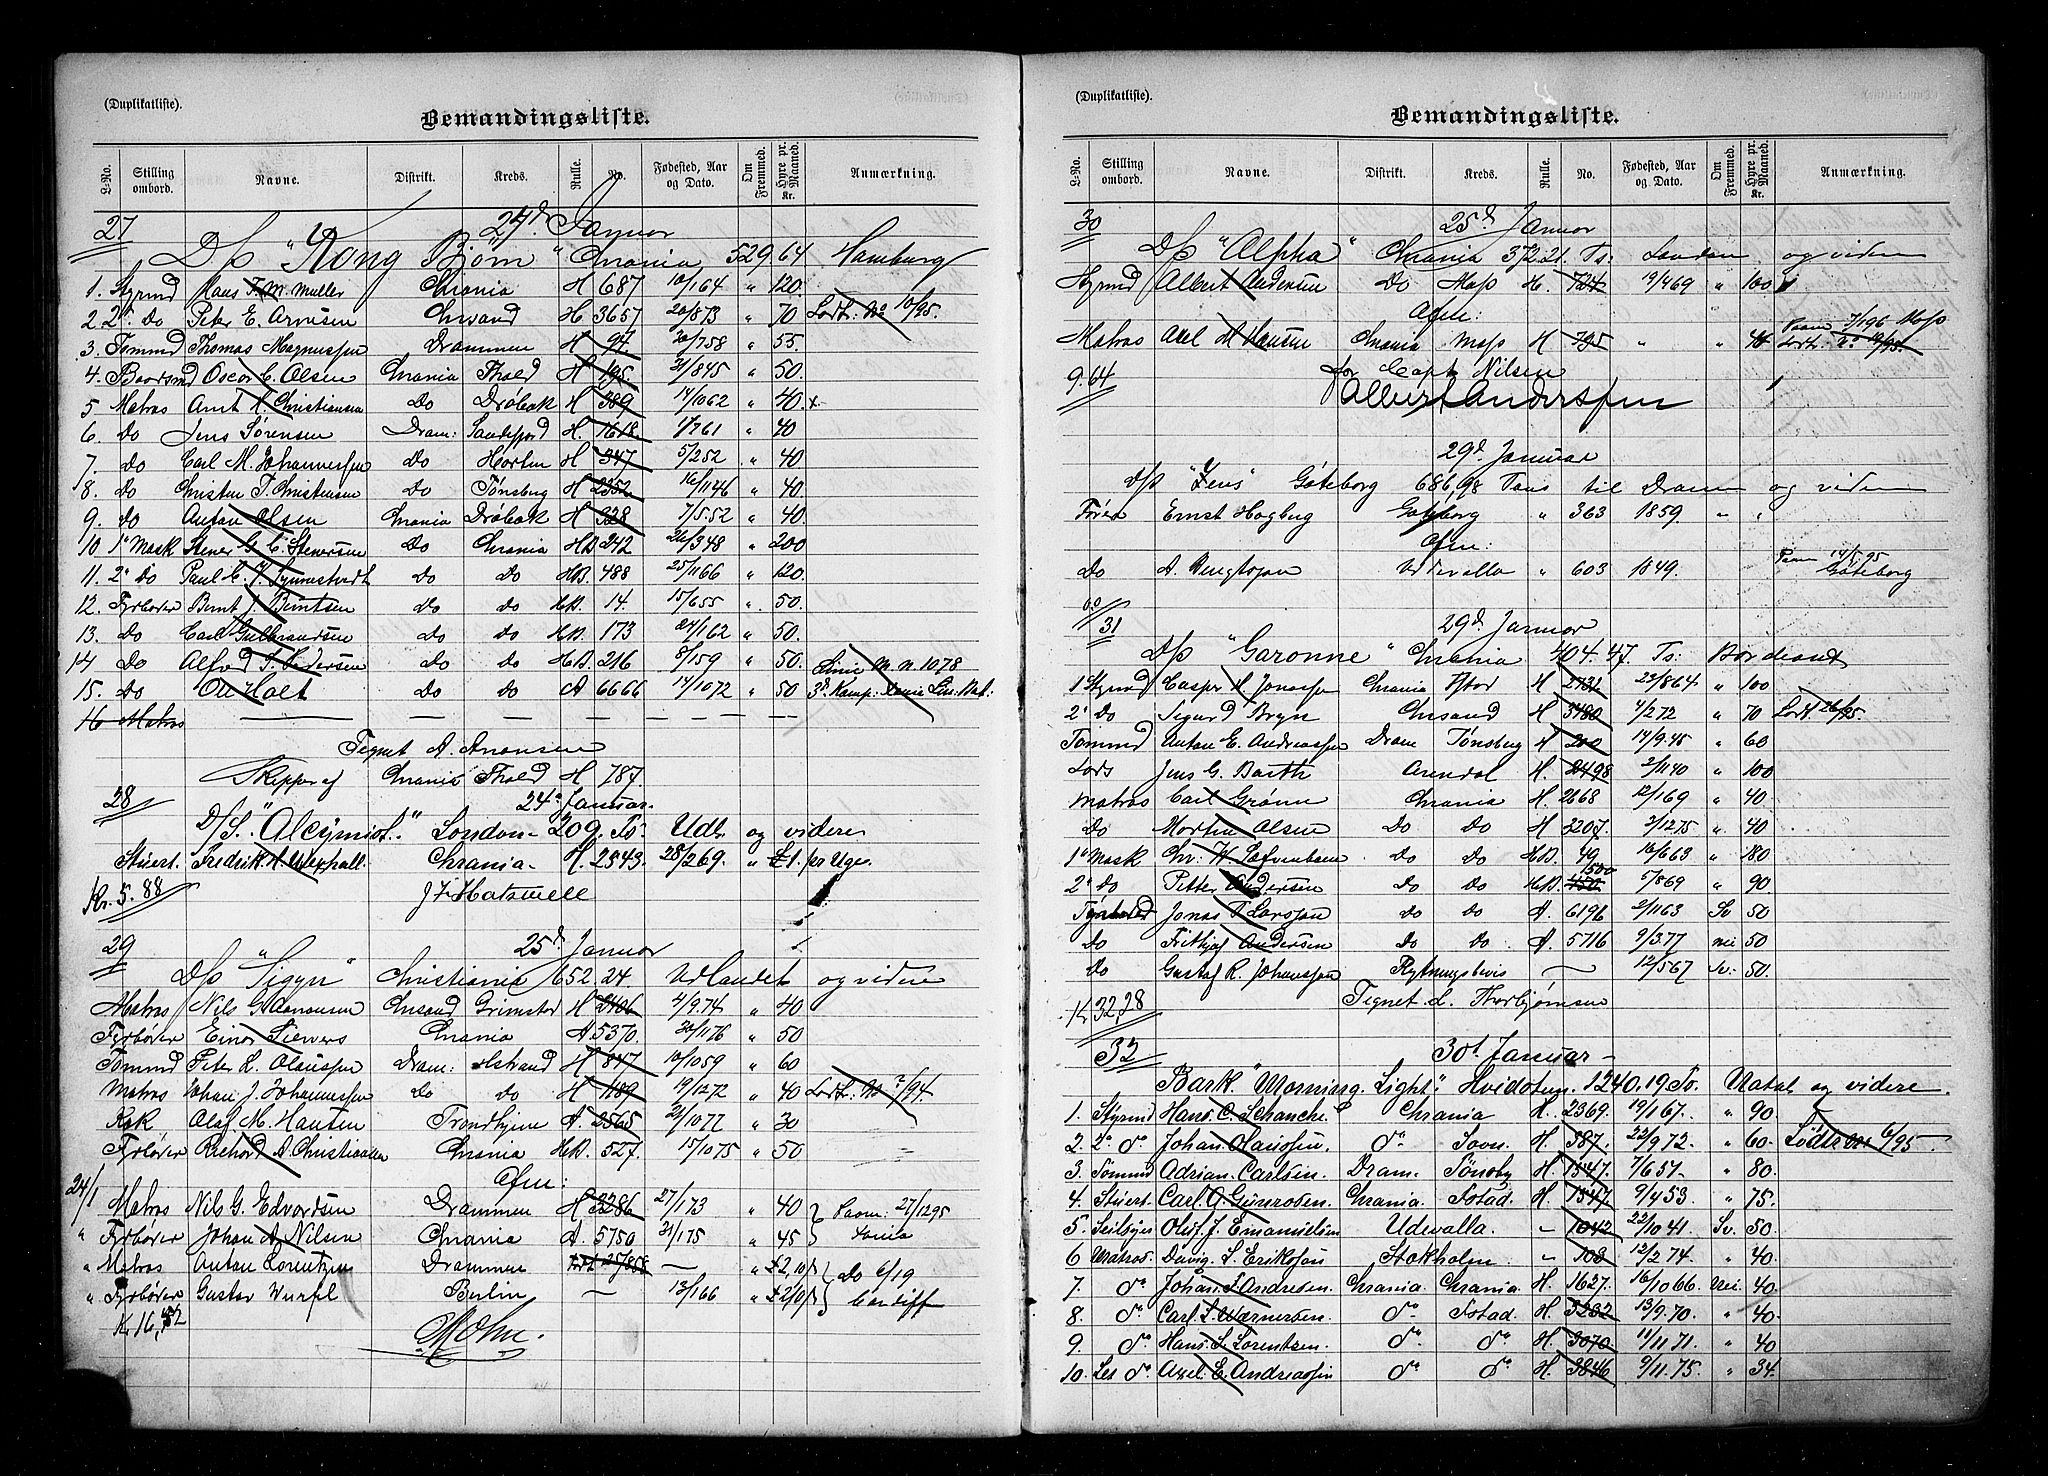 (Duplikatliste).
Bemandingsliste.
L-No. Stilling ombord. Navne. Distrikt. Kreds. Rulle. No. Fødested, Aar og Dato. Om Fremmed. Hyre pr. Maaned. Kr. Anmærkning.
27 24d Januar
D/s "Kong Bjørn" Chrania 529.64 Hamburg
1. Styrmd Hans F. M. Muller Chrania H 687 10/1 64 " 120.
2. 2d Do Peter E. Arnesen Chrsand H 3657 20/8 73 " 70 Lodt: No 10/95.
3. Tømmd Thomas Magnussen Drammen H 94 20/7 58 " 55
4. Baadsmd Oscar C. Olsen Chrania Thold H 195. 31/8 45 " 50.
5 Matros Arnt H. Christiansen Do Drøbak H 389 14/10 62 " 40 x
6. do Jens Sørensen Dram: Sandefjord H. 1618. 1/7 61 " 40
7. do Carl M. Johannessen Do Horten H 347 5/2 52 " 40
8. do Christen T. Christensen Do Tønsberg H 2352 16/11 46 " 40.
9. do Anton Olsen Chrania Drøbak H 328 7/5.52 " 40.
10. 1e Mask Stener G. C. Stenersen Do Chrania HB 242 26/3 48 " 200
11. 2e Do Paul C. J. Do Do HB. 488 25/11 66 " 120.
12. Fyrbøder Bernt J. Berntsen Do Do HB. 14. 15/6 55 " 50.
13. Do Carl Gulbrandsen Do Do HB. 173 24/1 62 " 50.
14 Do Alfred T. Pedersen Do Do HB. 216 8/1 59 " 50. M. n. 1078
15. Do Ole Holt Do Do A 6666 14/10 72 " 50
16 Matros — — — — — — — —
Tegnet A. Anonsen
Skipper af Chrania Thold H 787.
28 24d Januar.
D/S. "Alcymist." London - 209. Ts. Udl. og videre
Stuert. Fredrik A. Chrania - H. 2543. 28/2 69. " £1. pr Uge.
Kr. 5.88 J. F. Hatswell
29 25d Januar
D/s "Sigyn" Christiania 652.24 Udlandet og videre
Matros Nils G. Aanonsen Chrsand Grimstad H 2406 4/9.74 " 40
Fyrbøder Einar Siewers Chrania A 5370. 30/11 76 " 50.
Tømmd Peter L. Olaussen Dram: Holmstrand H 847 10/10 59 " 60
Matros Johan J. Johannessen Do Do H 1189 19/12 72 " 40 Lodt: No 7/94.
Kok Olaf M. Hansen Trondhjem A. 2565 21/10 77 " 30
Fyrbøder Richard A. Christiansen Chrania HB. 527 15/10 75 " 50
Afm:
24/1 Matros Nils G. Edvardsen Drammen H 3286 27/1 73 " 40 Paam: 27/12 95
" Fyrbøder Johan A. Nilsen Chrania A. 5750 31/1 75 " 45
" Matros Anton Lorentzen Drammen — " £2,10/ Do 6/19
" Fyrbøder Gustav Wurfl Berlin — 13/1 66 " £2/10/ Cardiff
K. 16,52

(Duplikatliste).
Bemandingsliste.
L-No. Stilling ombord. Navne. Distrikt. Kreds. Rulle. No. Fødested, Aar og Dato. Om Fremmed. Hyre pr. Maaned. Kr. Anmærkning.
30 25d Januar
D/s "Alpha" Chrania 372.21. Ts: London og videre
Styrmd Albert Andersen Do Moss H. 724 19/4 69 " 100
Afm:
Matros Axel M Hansen Chrania Moss H 795 " " 40 Paam 7/1 96 Moss
9.64 for Capt Nilsen
Albert Anderssen
29d Januar
D/s "Jens" Göteborg 686,98 Tons til Dram og videre
Fører Ernst Hogberg Göteborg " 363 1859 " "
Afm:
Do A. Bengtsson Uddevalla " 603 1849. Paam 14/5 95 Göteborg
31 29d Januar
D/s "Garonne" Chrania 404.47. Ts: Bordeaux
1 Styrmd Casper H. Jonassen Chrania Fstad H 2732 23/8 64 " 100
2e Do Sigurd Bryn Chrsand H 3480 4/2 72 " 70 Lodt 26/95.
Tømmd Anton E. Andreassen Dram Tønsberg H 200 14/9.45 " 60
Lods Jens G. Barth Arendal H. 2498 2/11 40 " 100
Matros Carl Grønn Chrania H. 2668 12/1 69 " 40
Do Morten Olsen Do Do H 3207. 2/12 75 " 40.
1e Mask Chr: W. Do Do HB. 49 10/6 63 " 180
2e Do Petter Andersen Do Do HB. 150 1500 5/8 69 " 90
Jonas T. Larsson Do Do A. 6196 2/11 63 Sv 50
Do Frithjof Andersen Do Do A. 5716 9/3.77 nei 50
Do Gustaf R. Johansson Flytningsbevis — 12/5 67 Sv. 50.
K. 32,28 Tegnet L. Thorbjørnsen
32 30t Januar -
Bark "Morning Light", Hvidsten. 1240,19 To. Natal og videre.
1. Styrmd Hans C. Schanche Chrania H. 2369. 19/1 67. " 90.
2. 2n do Johan Hansen. do Sarp. H. 387. 22/9.72. " 60. Lodtr. No 6/95.
3 Tømmd Adrian Carlsen. Dram. Tönsbg H. 1547. 7/6 57 " 80
4. Stuert. Carl A. Gunersen. Chrania. Fstad. H. 1347 9/4 53 " 75.
5. Seilsyer Oluf J. Emanuelsen Udevalla. - 1042 22/10 41. Sv. 50.
6 Matros. Davig. L. Eriksson Stokholm. " 108 12/2 74. " 40.
7 do Johan F. Andresen Chrania Chrania. H. 1627. 16/10 66. Nei. 40.
8. do Carl L. Wernersen. do Fstad. H. 3232 13/9.70. " 40.
9. do Hans L. Lorentsen. do do H. 3070 11/11 71. " 40
10. Let do Axel E. Andreassen do do H. 3846 9/11.75. " 34.